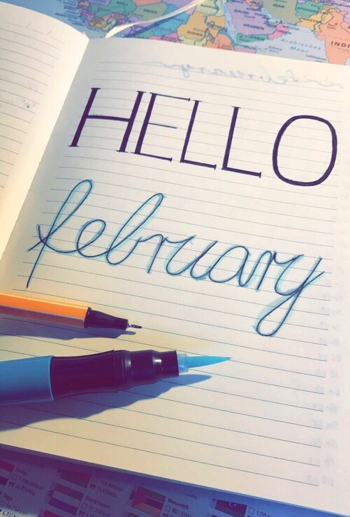 HELLO
february